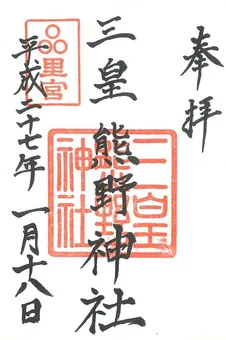 奉拝
三皇熊野神社
平成二十七年一月十八日
里宮
三皇熊野神社